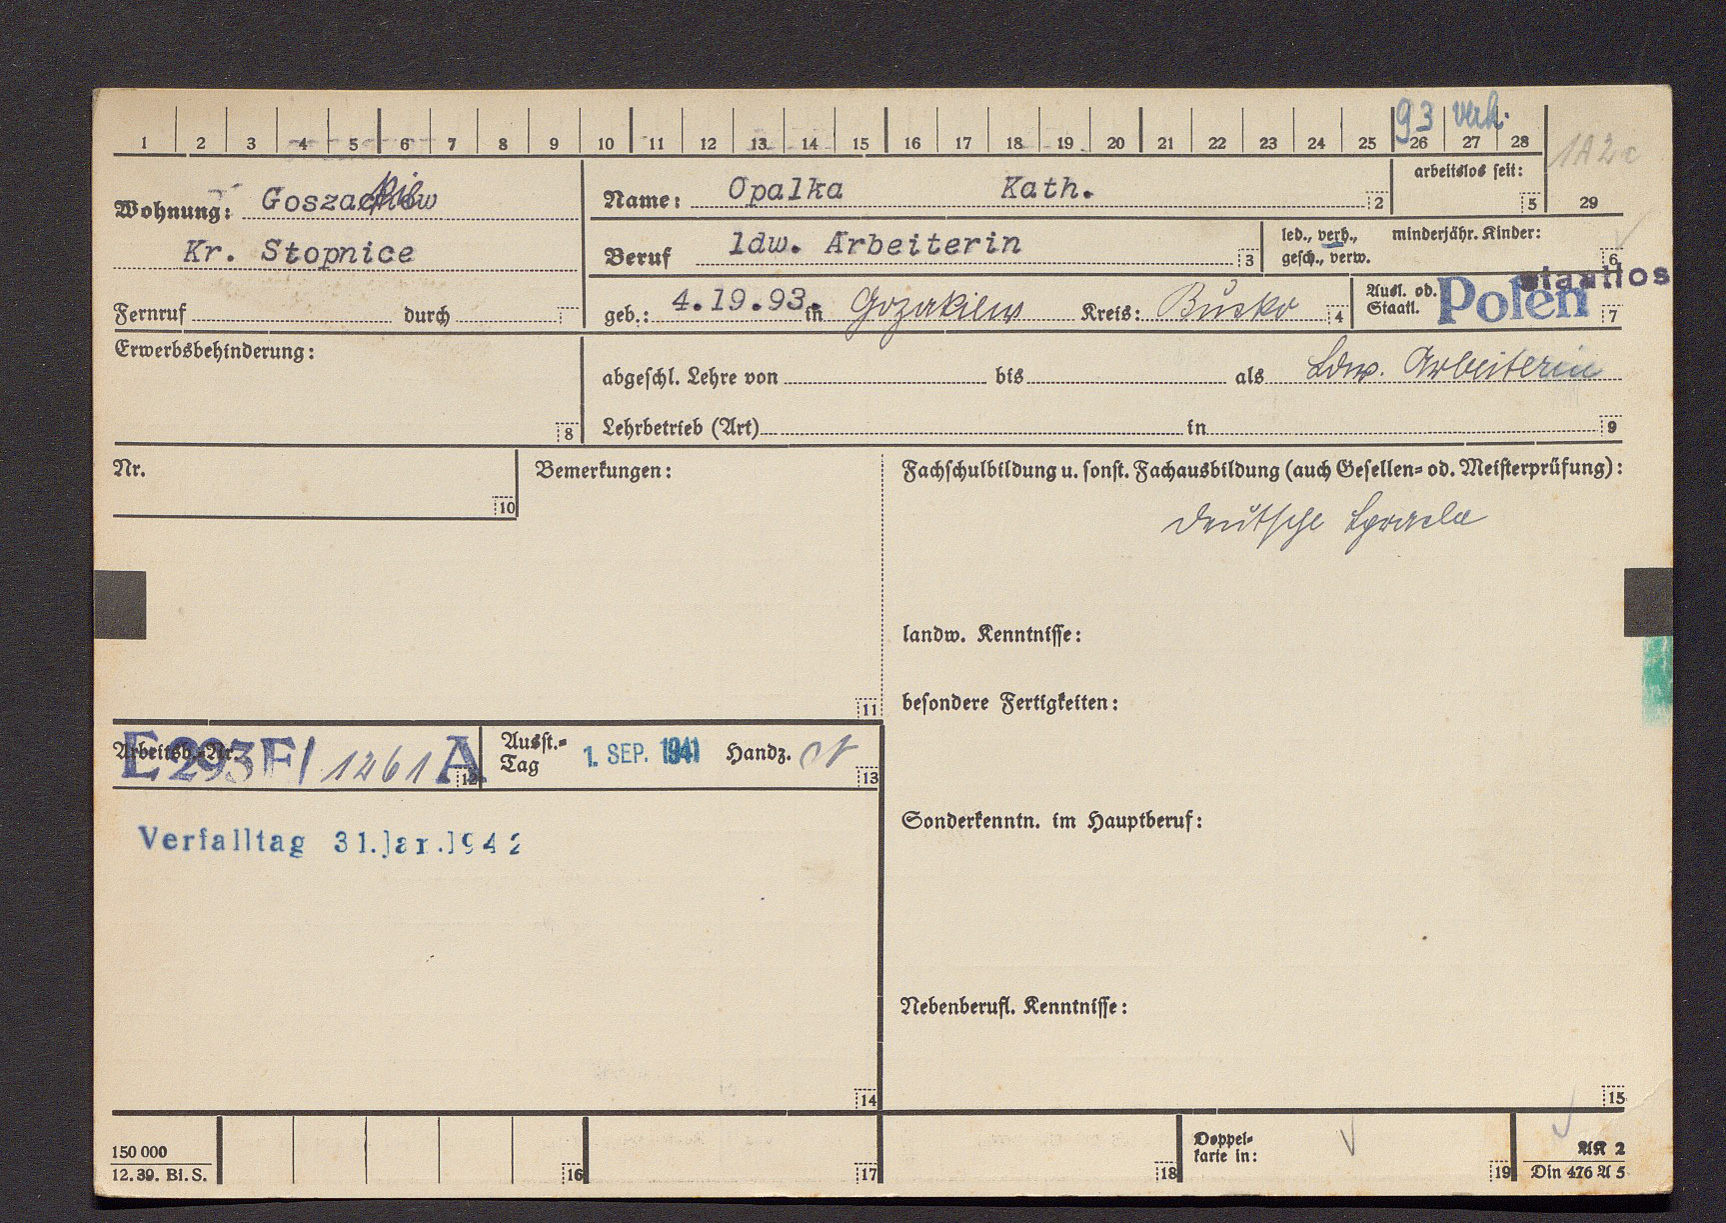 93 verh.
1 2 3 4 5 6 7 8 9 10 11 12 13 14 15 16 17 18 19 20 21 22 23 24 25 26 27 28
1A2c
29
Wohnung: Goszackiew
Kr. Stopnice
Fernruf durch
Name: Opalka Kath. 2
arbeitslos seit: 5
Beruf ldw. Arbeiterin 3
led., verh., gesch., verw.
minderjähr. Kinder: 6
geb.: 4.19.93. in Gozakiew Kreis: Busko 4
Ausl. od. Staatl. Polen 7
staatlos
Erwerbsbehinderung: 8
abgeschl. Lehre von bis als Ldw. Arbeiterin
Lehrbetrieb (Art) in 9
Nr. 10
Bemerkungen: 11
Fachschulbildung u. sonst. Fachausbildung (auch Gesellen- od. Meisterprüfung):
deutsche Sprache
landw. Kenntnisse:
besondere Fertigkeiten:
Arbeitsb.-Nr. E 293 F/ 1261 A 12
Ausst.-Tag 1. SEP. 1941 Handz. 13
Verfalltag 31.Jan.1942
14
Sonderkenntn. im Hauptberuf:
Nebenberufl. Kenntnisse:
15
150 000
12. 39. Bi. S.
16 17 18
Doppelkarte in: 19
AK 2
Din 476 A 5